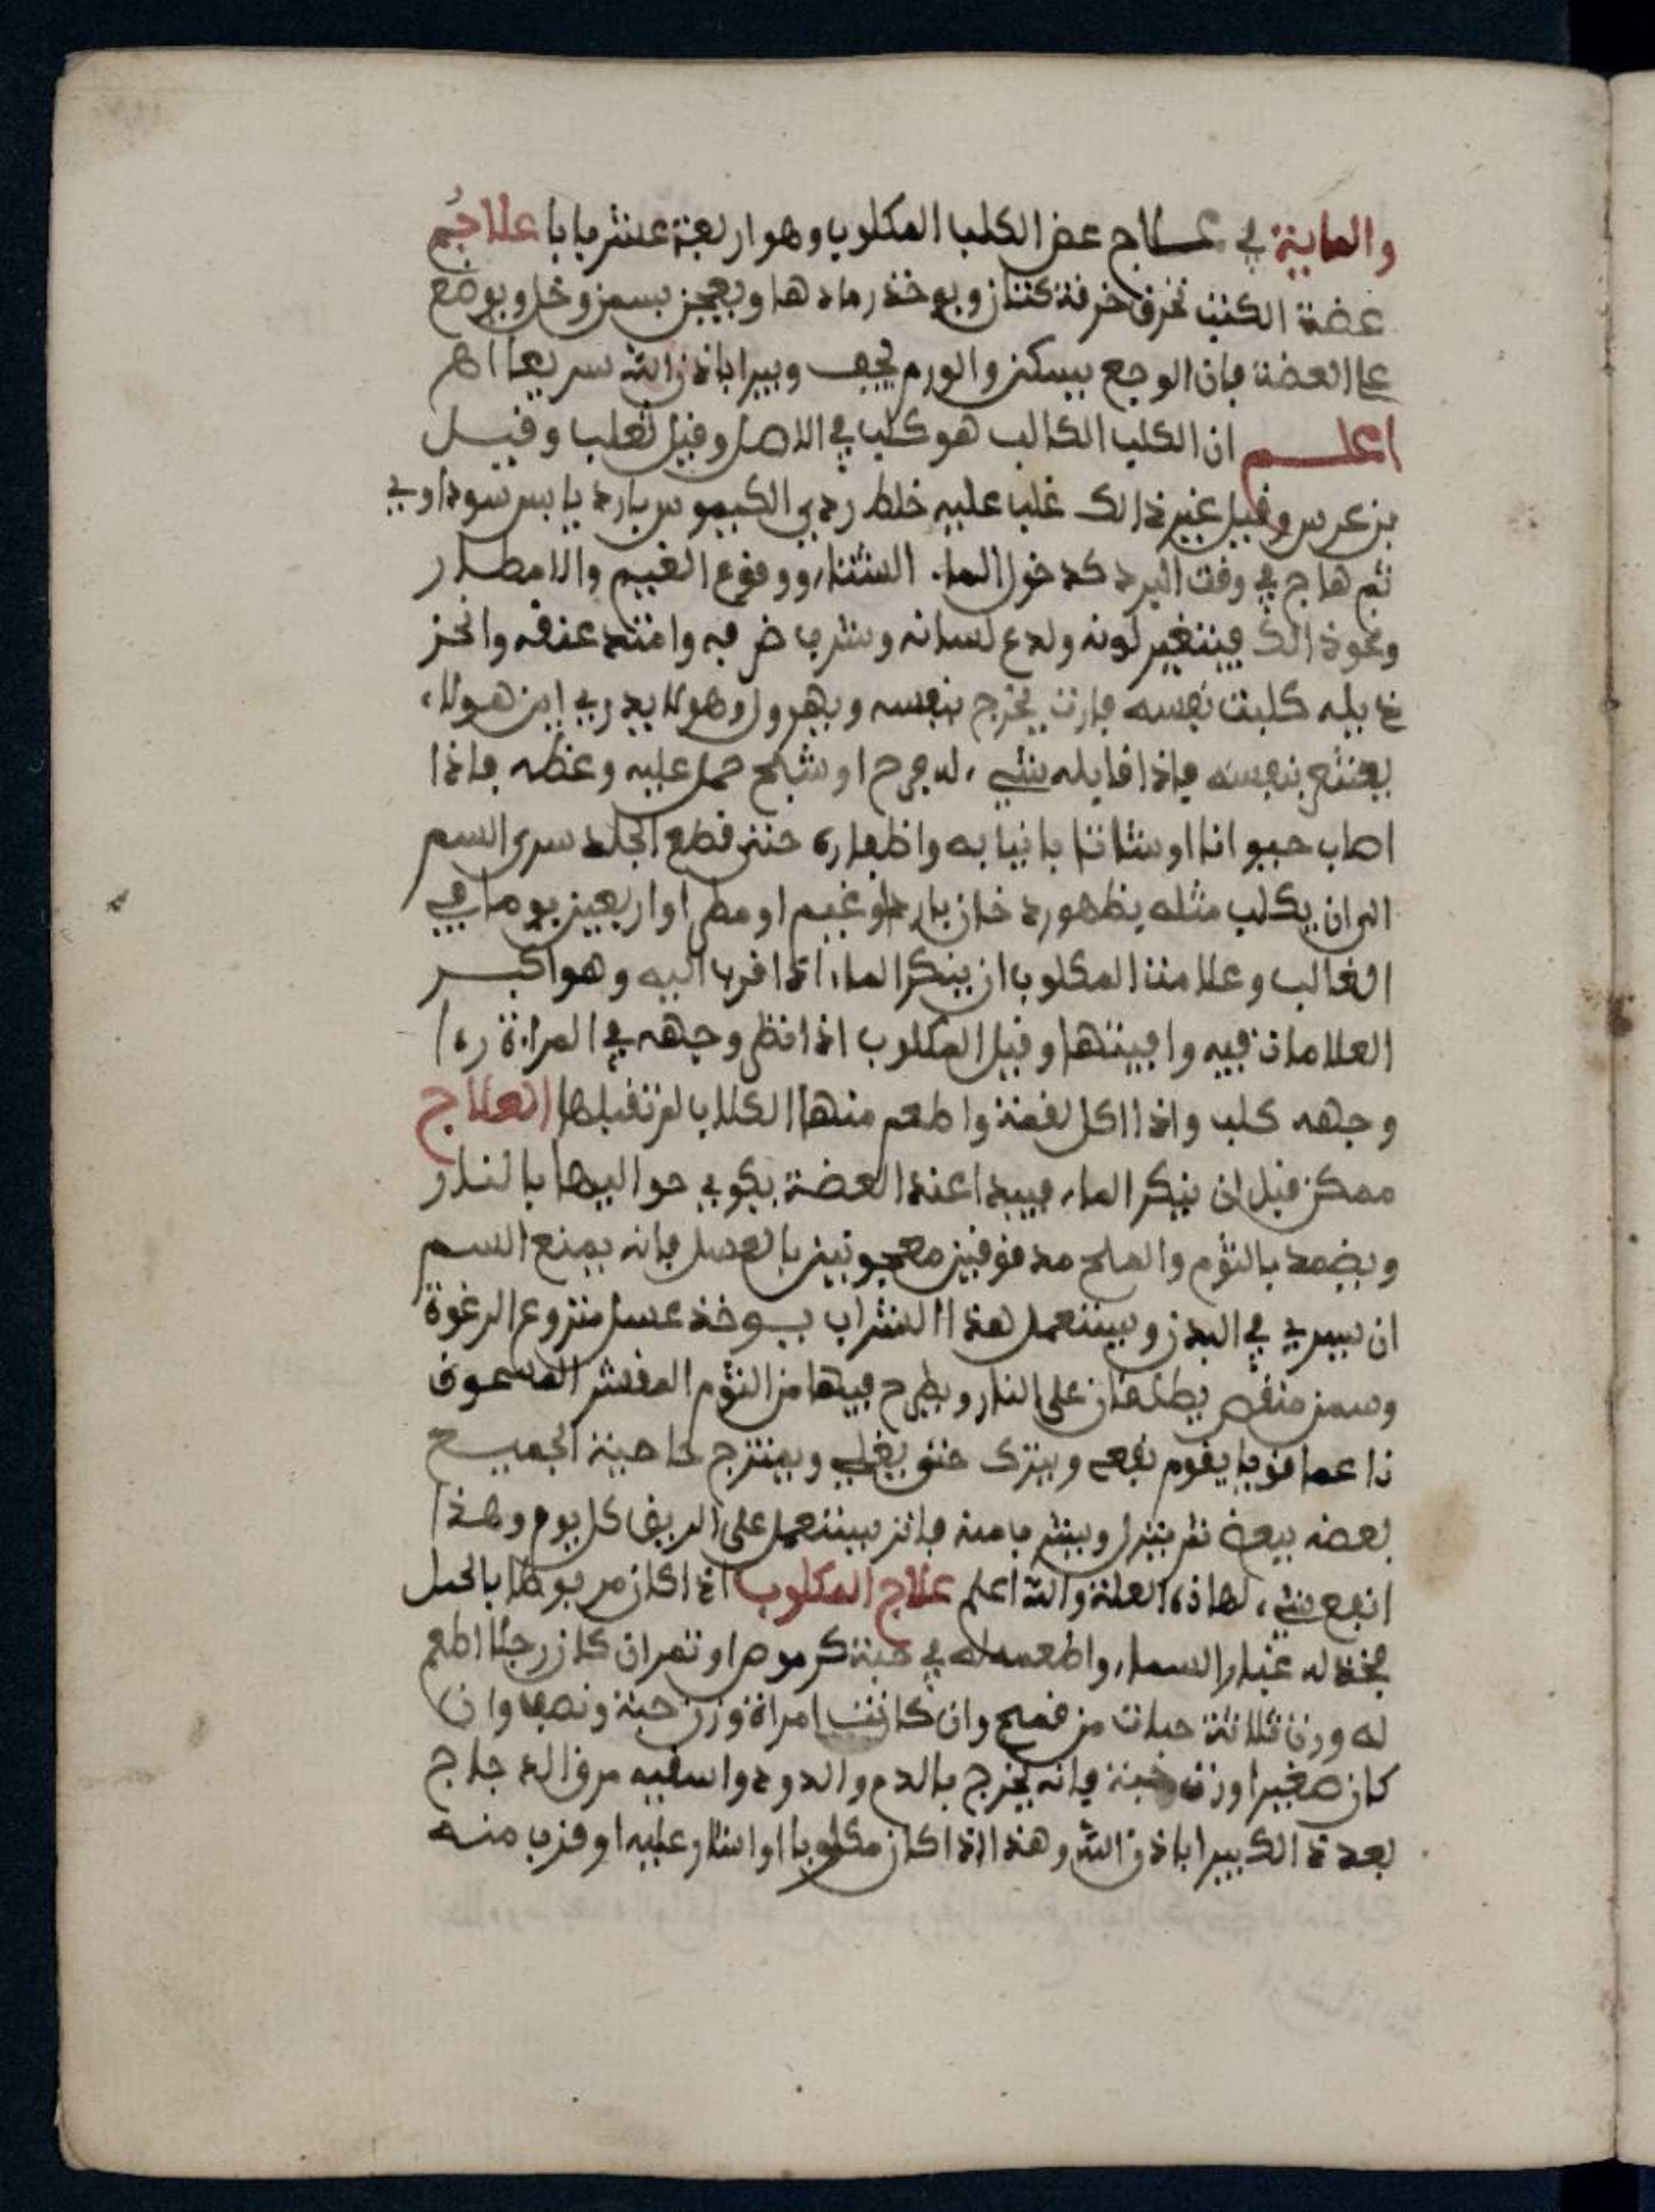 والماية في علاج عض الكلب المكلوب وهو اربعة عشر بابا علاج
عضة الكلب تحرق خرقة كتان ويوخذ رمادها ويعجن بسمن وخل ويوضع
على العضة فان الوجع يسكن والورم يجف ويبرا باذن الله سريعا اهـ
اعلم ان الكلب الكالب هو كلب في الاصل وقيل ثعلب وقيل
بن عرس وقيل غير ذالك غلب عليه خلط ردي الكيموس بارد يابس سوداوي
ثم هاج في وقت البرد كدخول الما الشتاء ووقوع الغيم والامطار
ونحو ذالك فيتغير لونه ولدع لسانه وامتد عنقه وانحز
ذيله كلبت نفسه يخرج بنفسه ويهرول وهو لا يدري اين هولاء
بنفسه فاذا قابله شيء له جرح او شبح حمل عليه وعظه فاذا
اصاب حيوانا او شاتا بانيابه واظفاره حتى قطع الجلد سرى السم
الى ان يكلب مثله يظهور دخان بارد او غيم او مطر او اربعين يوما في
الغالب وعلامت المكلوب ان ينكر الماء اذا قرب اليه وهو اكبر
العلامات فيه وابينتها وقيل المكلوب اذا نظر وجهه في المراءة رءا
وجهه كلب واذا اكل لقمة واطعم منها الكلاب لم تقبلها العلاج
ممكن قبل ان ينكر الماء فيبدا عند العضة يكوي حواليها بالنار
ويضمد بالثوم والملح مدقوقين معجونين بالعسل فانه يمنع السم
ان يسري في البدن ويستعمل هذا الشراب يوخذ عسل منزوع الرغوة
وسمن على النار ويطرح فيها من الثوم المقشر المسحوق
ناعما قويا يقوم نفعه ويترك حتى يغلي ويمتزج الجميع
بعضه ببعض ثم ينزل منه يستعمل على الريق كل يوم وهذا
انفع شيء لهاذه العلة والله اعلم علاج المكلوب اذا كان مربوطا بالحبل
فخذ له غبار السماء واطعمه له في حبة كرموص او تمر ان كان رجلا اطعم
له وزن ثلاثة حبات من قمح وان كانت امراة وزن حبة ونصف وان
كان صغيرا وزن حبة فانه يخرج بالدم والدود واسقيه مرق الدجاج
بعد ذالك يبرا باذن الله وهذا اذا كان مكلوبا او اشار عليه او قرب منه